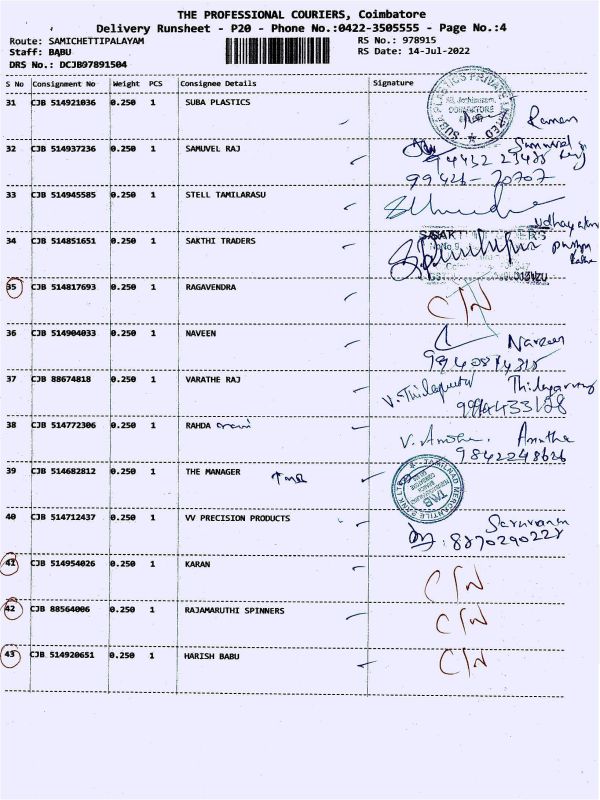 THE PROFESSIONAL COURIERS, Coimbatore
Delivery Runsheet - P20 - Phone No.:0422-3505555 - Page No.:4
Route: SAMICHETTIPALAYAM RS No.: 978915
Staff: BABU RS Date: 14-Jul-2022
DRS No.: DCJB97891504
S No Consignment No Weight PCS Consignee Details Signature
31 CJB 514921036 0.250 1 SUBA PLASTICS
SUBA PLASTICS PRIVATE LIMITED
COIMBATORE
Raman
32 CJB 514937236 0.250 1 SAMUVEL RAJ
99426-70707
33 CJB 514945585 0.250 1 STELL TAMILARASU
34 CJB 514851651 0.250 1 SAKTHI TRADERS
35 CJB 514817693 0.250 1 RAGAVENDRA C/N
36 CJB 514904033 0.250 1 NAVEEN Naveen
37 CJB 88674818 0.250 1 VARATHE RAJ
38 CJB 514772306 0.250 1 RAHDA
Anitha
9842248626
39 CJB 514682812 0.250 1 THE MANAGER
TAMILNAD MERCANTILE BANK LTD
TMB
40 CJB 514712437 0.250 1 VV PRECISION PRODUCTS
Saravanan
8870290228
41 CJB 514954026 0.250 1 KARAN C/N
42 CJB 88564006 0.250 1 RAJAMARUTHI SPINNERS C/N
43 CJB 514920651 0.250 1 HARISH BABU C/N